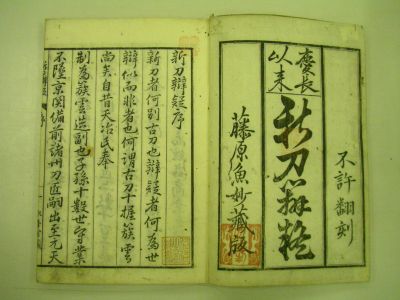 慶長
以来
新刀辨疑
不許翻刻
藤原魚妙藏版
新刀辨疑序
新刀者何別古刀也辨疑者何為世
辯似而非者也何謂古刀十握簇雲
尚矣自昔天冶氏奉
制為簇雲造副也子孫十數世守業
不墜京関備前諸州刀匠嗣出至元天